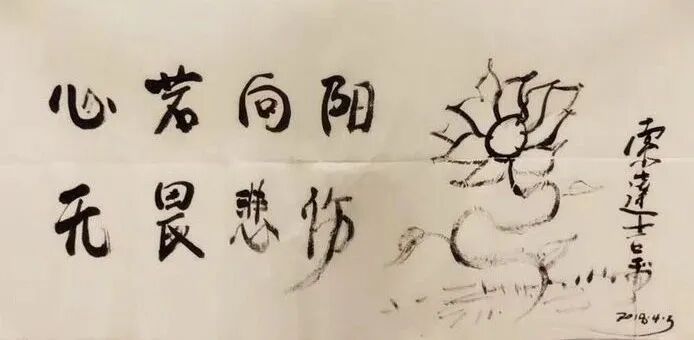 心若向阳
无畏悲伤
索达吉书
2018.4.5